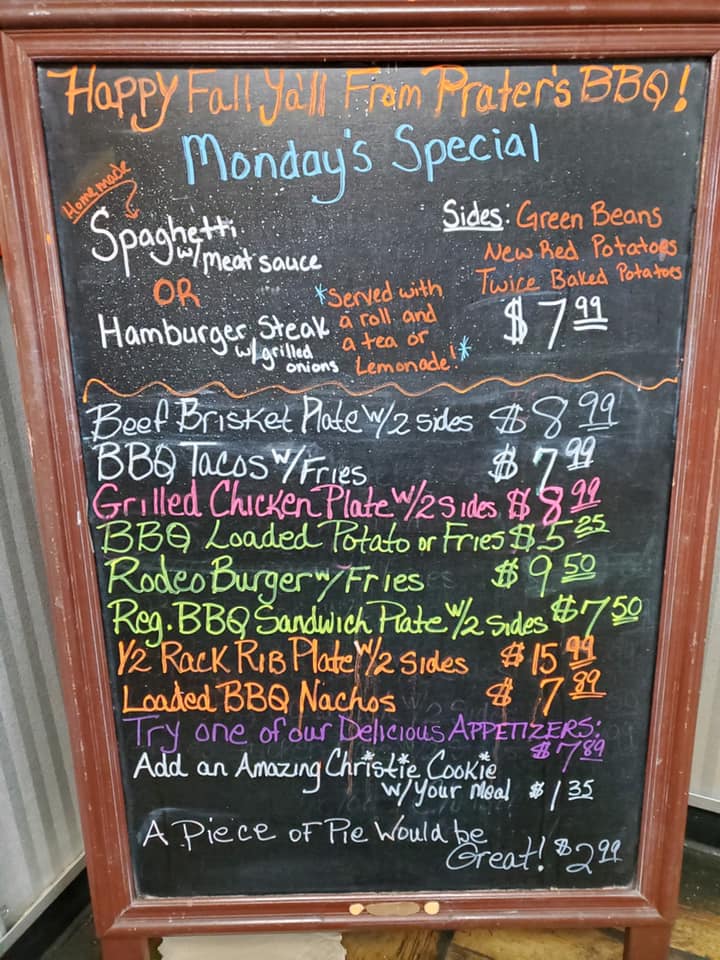 Happy Fall Ya'll From Prater's BBQ!
Monday's Special
Homemade
Spaghetti
w/meat sauce
OR
Hamburger Steak
w/grilled
onions
*Served with
a roll and
a tea or
Lemonade!*
Sides: Green Beans
New Red Potatoes
Twice Baked Potatoes
$7.99
Beef Brisket Plate w/2 sides $8.99
BBQ Tacos w/Fries $7.99
Grilled Chicken Plate w/2 Sides $8.99
BBQ Loaded Potato or Fries $5.25
Rodeo Burger w/Fries $9.50
Reg. BBQ Sandwich Plate w/2 sides $7.50
1/2 Rack Rib Plate w/2 Sides $15.99
Loaded BBQ Nachos $7.89
Try one of our Delicious APPETIZERS:
$7.89
Add an Amazing Christie Cookie
w/your meal $1.35
A Piece of Pie Would be
Great! $2.99